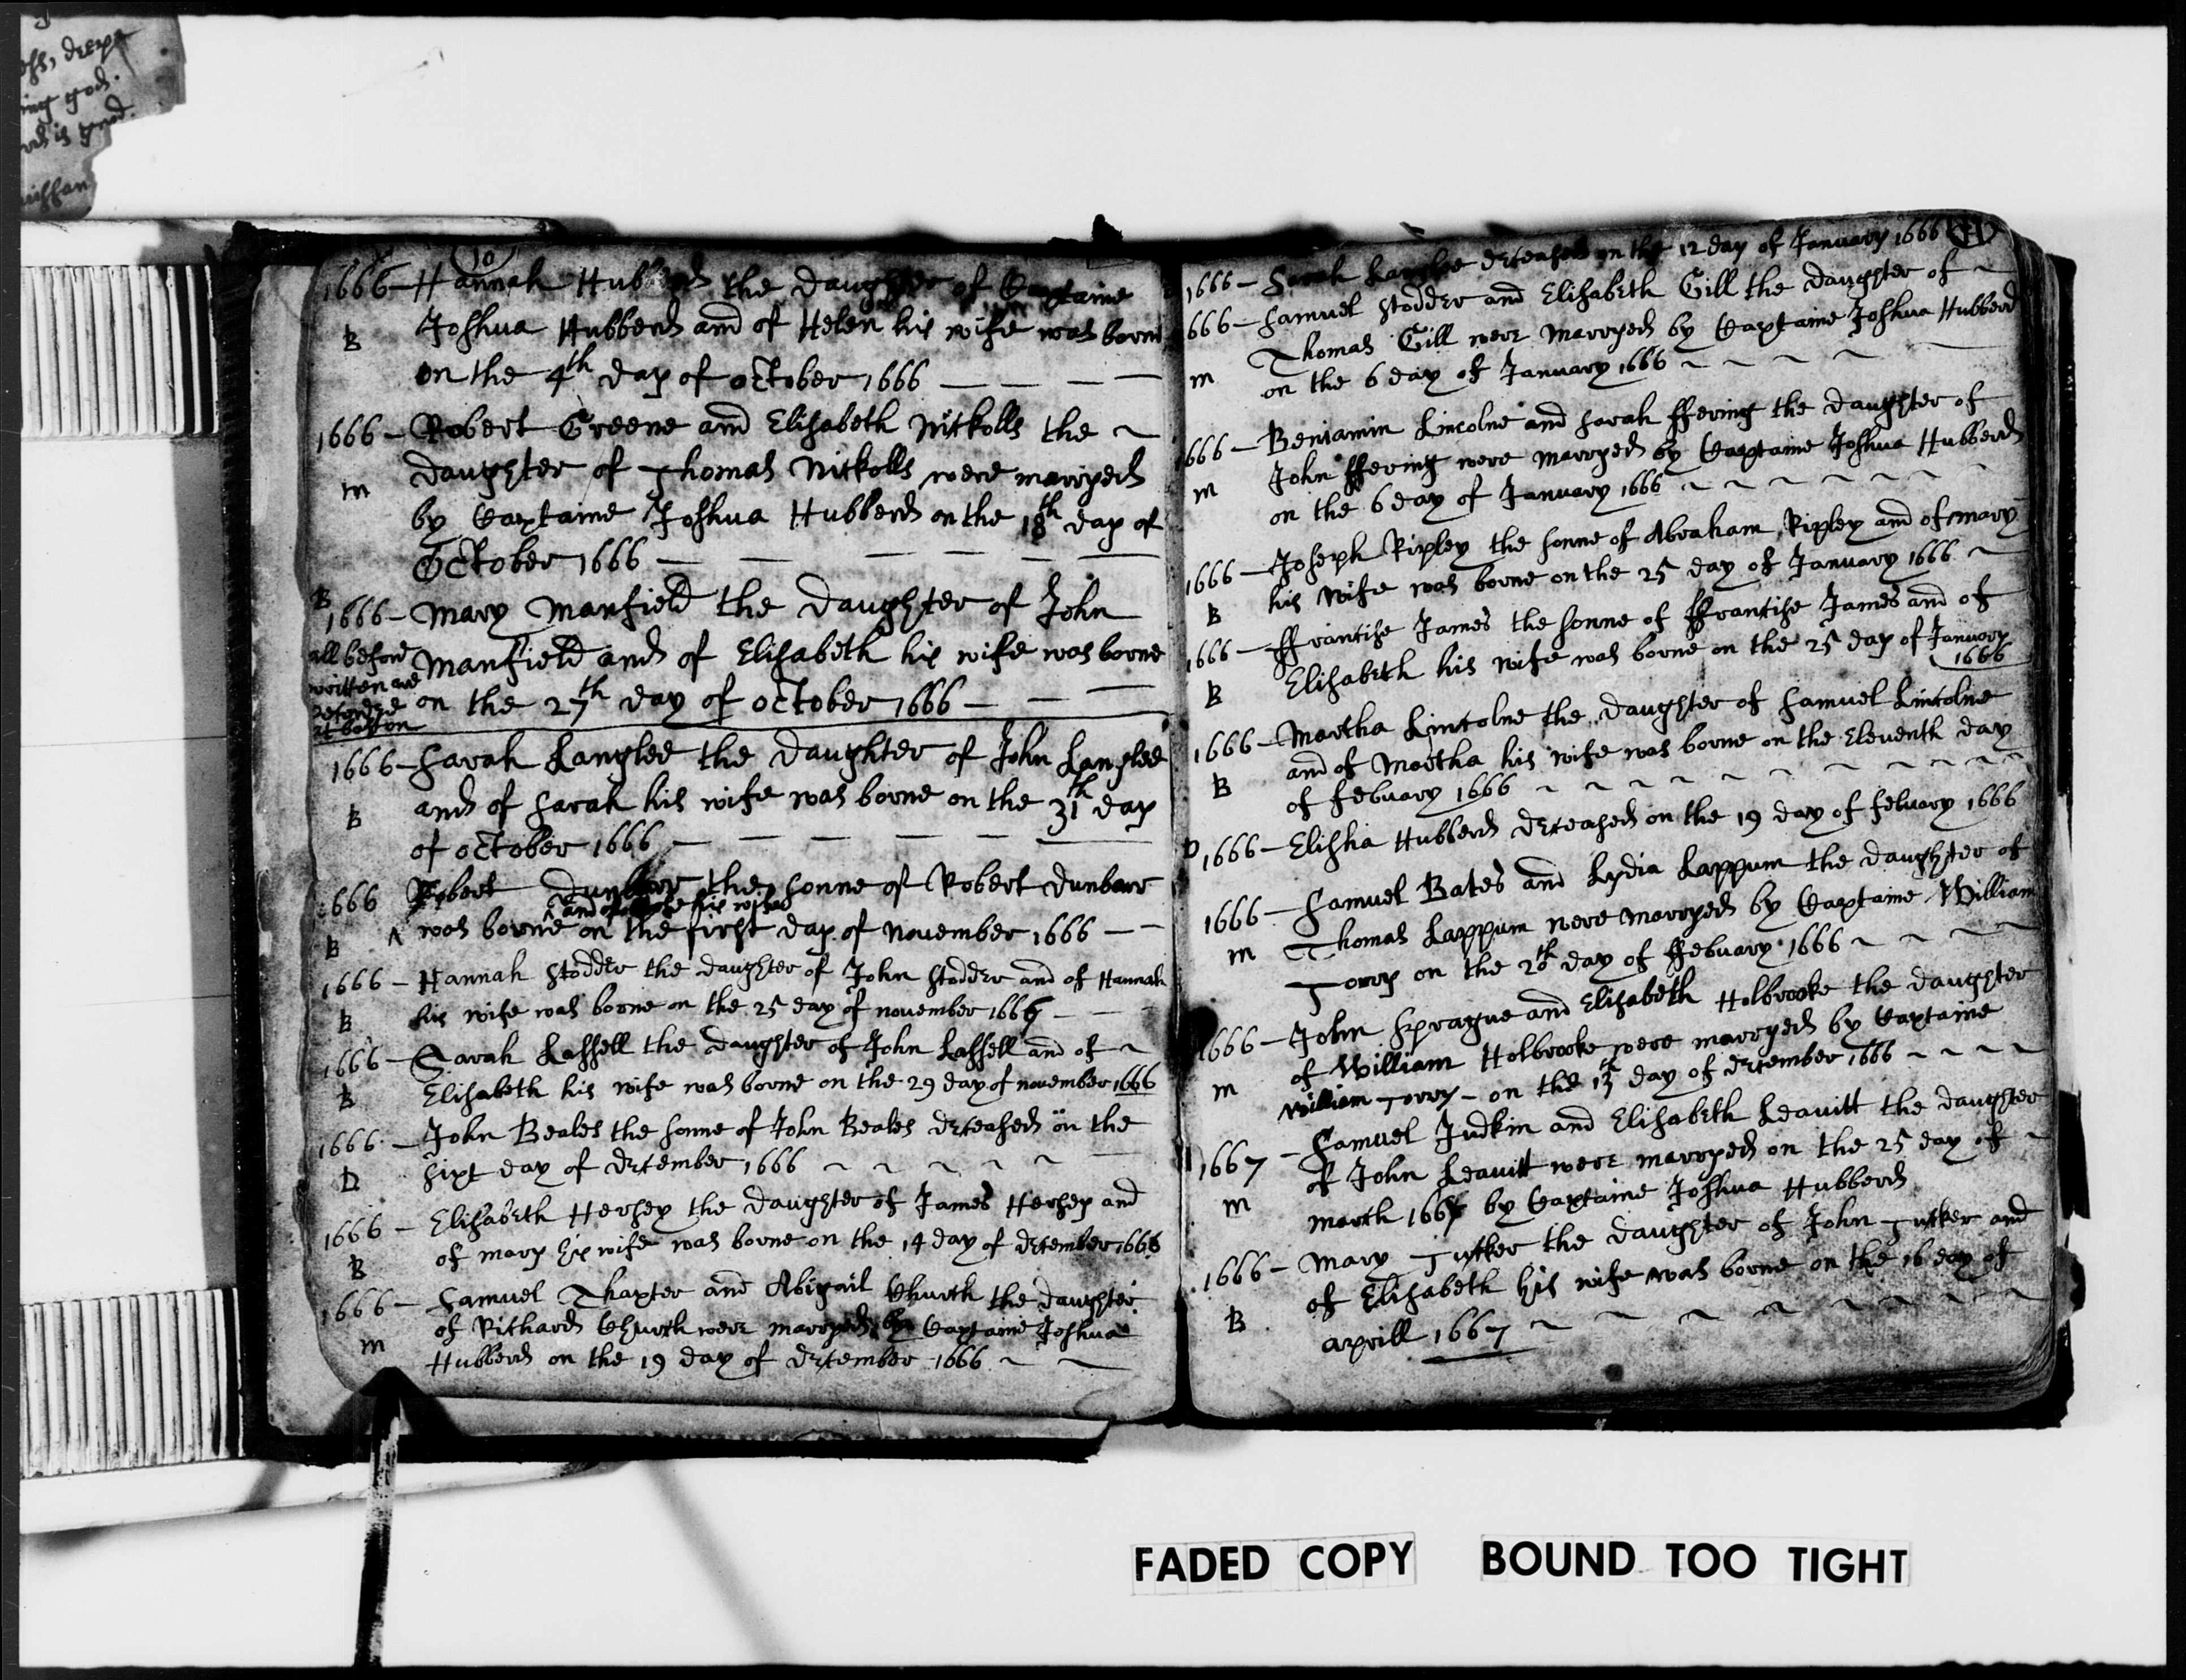 ess, deepe
ing god.
is good.
10
1666 - Hannah Hubberd the daughter of Captaine
B Joshua Hubberd and of Helen his wife was borne
on the 4th day of october 1666 — — — —
1666 - Robert Greene and Elisabeth Nickolls the ~
m daughter of Thomas Nickolls were marryed
by Captaine Joshua Hubberd on the 18th day of
October 1666 — — — — — —
B 1666 - Mary Manfield the daughter of John
Manfield and of Elisabeth his wife was borne
on the 27th day of october 1666 — — —
all before
written are
at boston
1666 - Sarah Langlee the daughter of John Langlee
B and of Sarah his wife was borne on the 31th day
of october 1666 — — — — — —
1666 Robert Dunbarr the sonne of Robert Dunbarr
and of his wife
B ^ was borne on the first day of november 1666 — —
1666 - Hannah Stodder the daughter of John Stodder and of Hannah
B his wife was borne on the 25 day of november 1666 — — —
1666 - Sarah Lassell the daughter of John Lassell and of ~
B Elisabeth his wife was borne on the 29 day of november 1666
1666 - John Beales the sonne of John Beales deceased on the
D sixt day of december 1666 ~ ~ ~ ~ ~ —
1666 - Elisabeth Hersey the daughter of James Hersey and
B of mary his wife was borne on the 14 day of december 1666
1666 - Samuel Thaxter and Abigail Church the daughter
m of Richard Church were marryed by Captaine Joshua
Hubberd on the 19 day of december 1666 ~ ~
11
1666 - Sarah Langlee deceased on the 12 day of January 1666
666 - Samuel Stodder and Elisabeth Gill the daughter of ~
Thomas Gill were marryed by Captaine Joshua Hubberd
m on the 6 day of January 1666 ~ ~ ~ ~ —
666 - Beniamin Lincolne and Sarah ffering the daughter of
m John ffering were marryed by Captaine Joshua Hubberd
on the 6 day of January 1666 ~ ~ ~ ~ ~ ~
1666 - Joseph Ripley the sonne of Abraham Ripley and of mary
B his wife was borne on the 25 day of January 1666 ~
1666 - ffrancise James the sonne of ffrancise James and of
B Elisabeth his wife was borne on the 25 day of January
1666
1666 - Martha Lincolne the daughter of Samuel Lincolne
B and of Martha his wife was borne on the Eleventh day
of febuary 1666 ~ ~ ~ ~ ~ ~ ~ ~ ~ ~
D 1666 - Elisha Hubberd deceased on the 19 day of febuary 1666
1666 - Samuel Bates and Lydia Lappum the daughter of
m Thomas Lappum were marryed by Captaine William
Torry on the 20th day of ffebuary 1666 ~ ~ ~ ~
1666 - John Sprague and Elisabeth Holbrooke the daughter
m of William Holbrooke were marryed by Captaine
William Torry - on the 13th day of december 1666 ~ ~ ~ ~
1667 - Samuel Judkin and Elisabeth Leavitt the daughter
m of John Leavitt were marryed on the 25 day of ~
march 1667 by Captaine Joshua Hubberd
1666 - Mary Tucker the daughter of John Tucker and
B of Elisabeth his wife was borne on the 16 day of
aprill 1667 ~ ~ ~ ~ ~ ~ ~ ~
FADED COPY BOUND TOO TIGHT